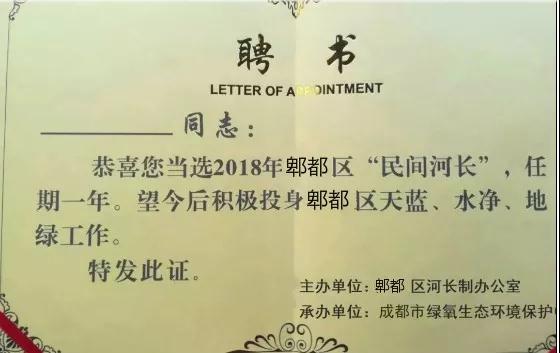 聘 书
LETTER OF APPOINTMENT
同志：
恭喜您当选2018年郫都区“民间河长”，任
期一年。望今后积极投身郫都区天蓝、水净、地
绿工作。
特发此证。
主办单位：郫都 区河长制办公室
承办单位：成都市绿氧生态环境保护